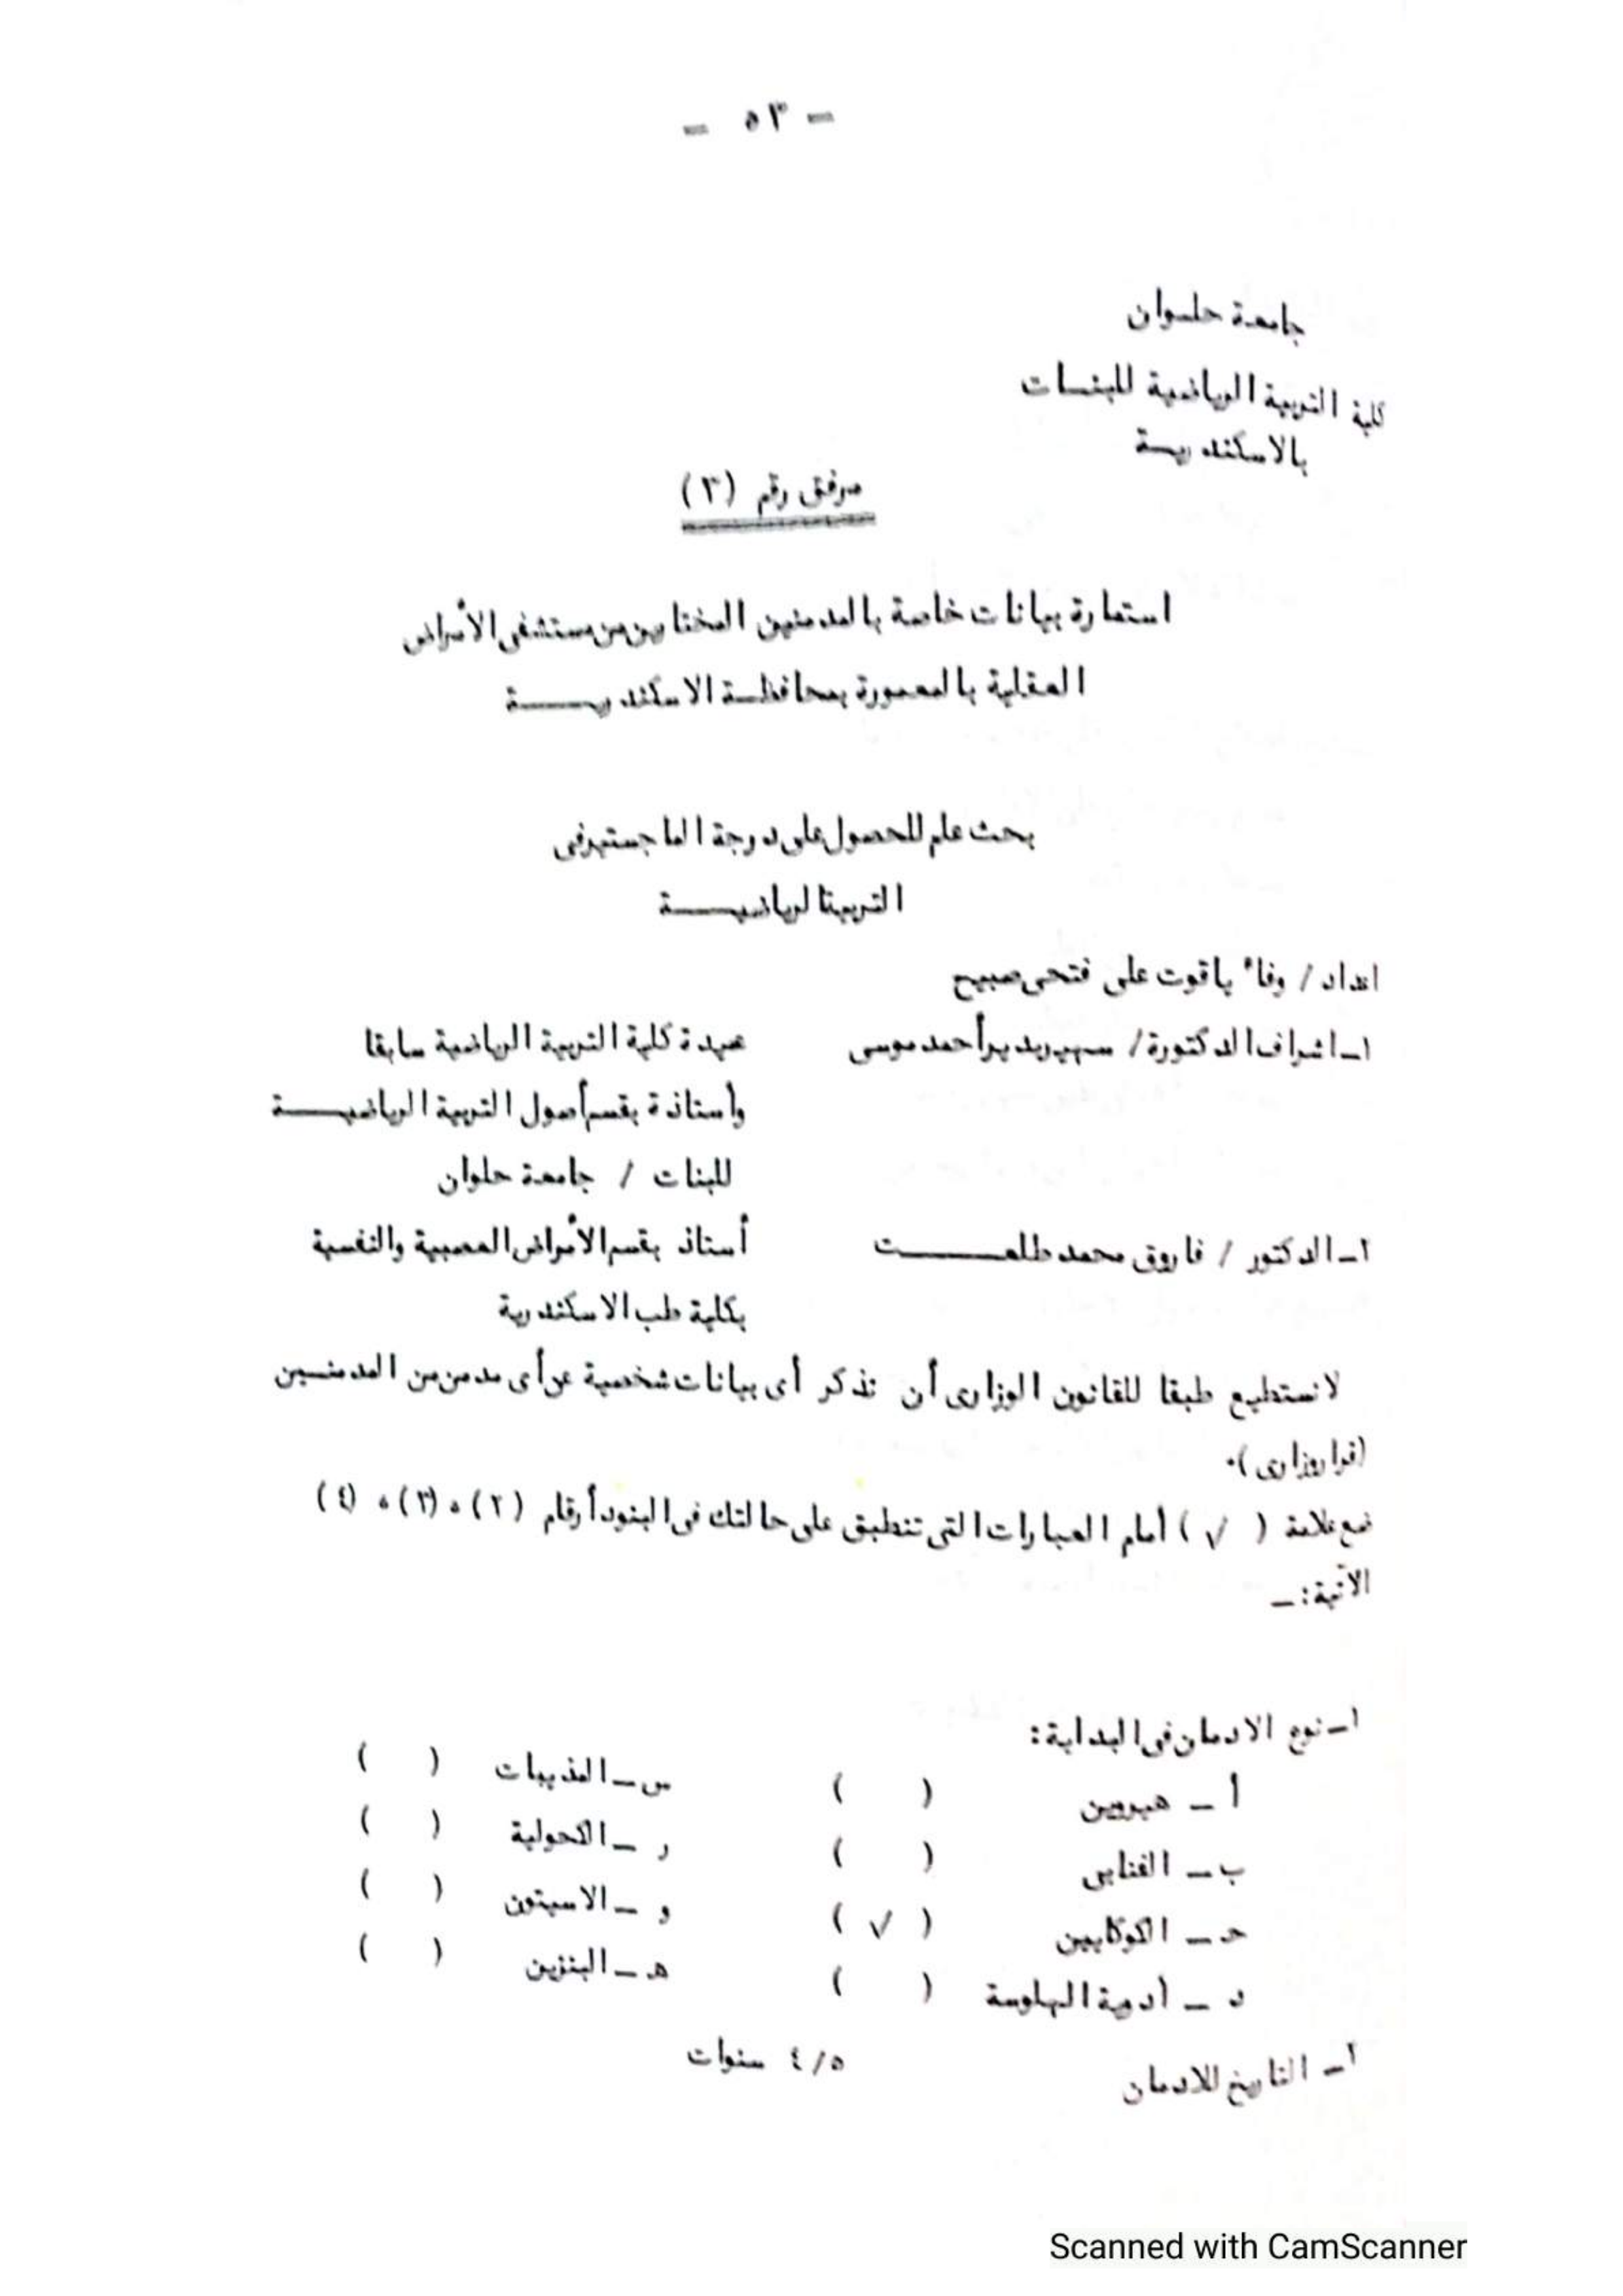 - ٥٣ -
جامعة حلوان
كلية التربية الرياضية للبنات
بالاسكندرية
مرفق رقم (٣)
استمارة بيانات خاصة بالمدمنين المختارين من مستشفى الأمراض
العقلية بالمعمورة بمحافظة الاسكندرية
بحث علم للحصول على درجة الماجستير فى
التربية الرياضية
اعداد / وفاء ياقوت على فتحى صبيح
١ـ اشراف الدكتورة / سهير بدير أحمد موسى عميدة كلية التربية الرياضية سابقا
وأستاذة بقسم أصول التربية الرياضية
للبنات / جامعة حلوان
٢ـ الدكتور / فاروق محمد طلعت أستاذ بقسم الأمراض العصبية والنفسية
بكلية طب الاسكندرية
لا نستطيع طبقا للقانون الوزارى أن نذكر أى بيانات شخصية عن أى مدمن من المدمنين
(قرار وزارى).
ضع علامة ( √ ) أمام العبارات التى تنطبق على حالتك فى البنود أرقام (٢) ، (٣) ، (٤)
الآتية: ـ
١ـ نوع الادمان فى البداية:
أ ـ هيروين ( ) س ـ المذيبات ( )
ب ـ القنابى ( ) ر ـ الكحولية ( )
حـ ـ الكوكايين ( √ ) و ـ الاسيتون ( )
د ـ أدوية الهلوسة ( ) هـ ـ البنزين ( )
٢ـ التاريخ للادمان ٤/٥ سنوات
Scanned with CamScanner